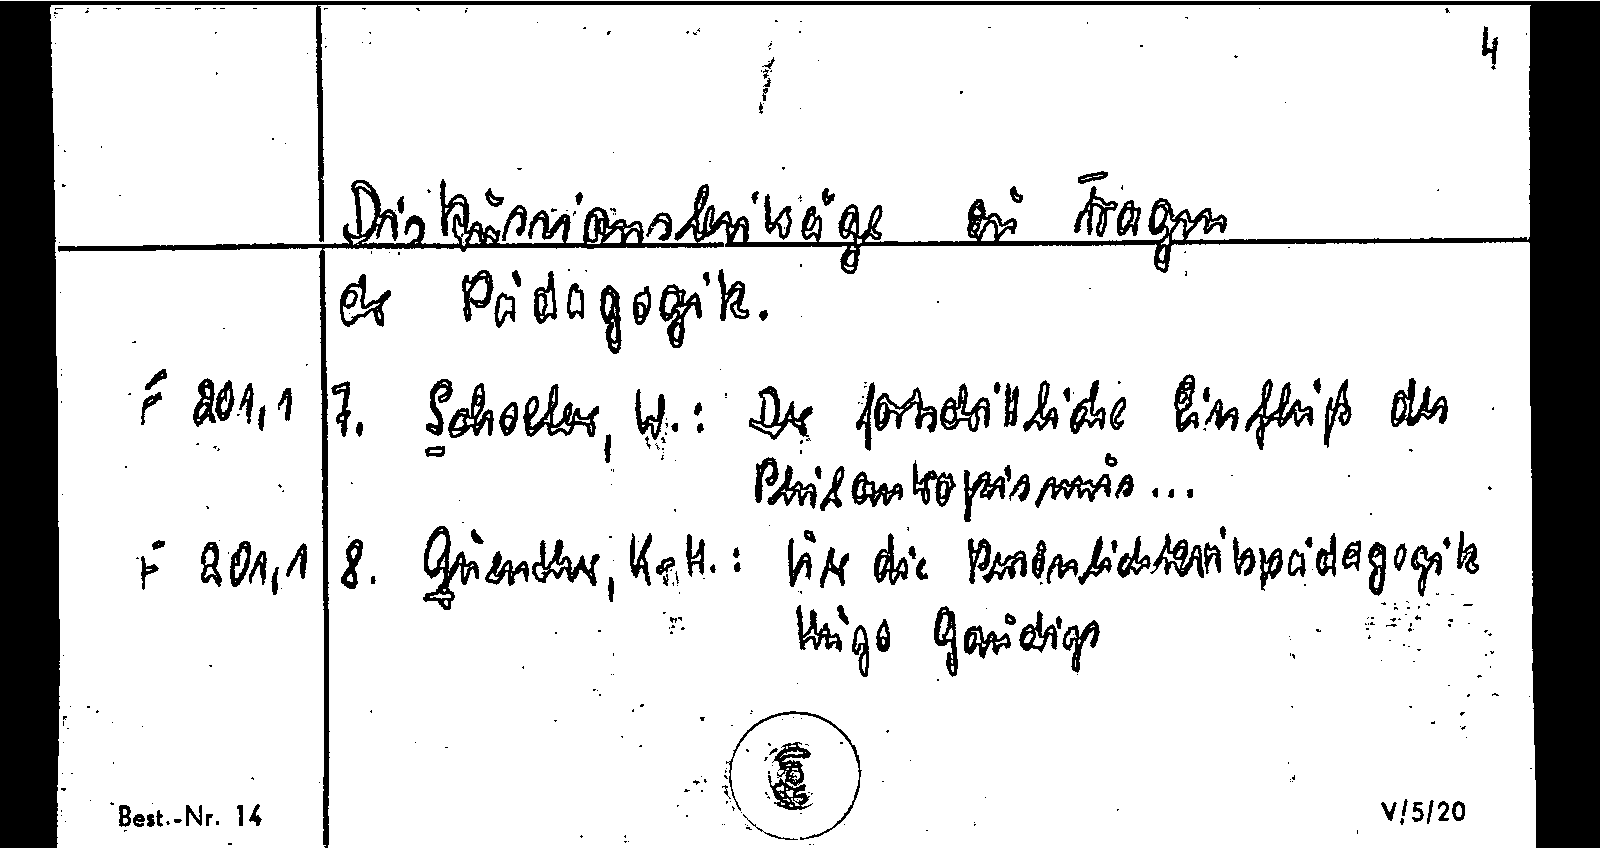 4
Diskussionsbeiträge zu Fragen
der Pädagogik.
F 201,1 7. Scholler, W.: Der fortschrittliche Einfluß des
Philantropismus...
F 201,1 8. Günther, K.-H.: Über die Persönlichkeitspädagogik
Hugo Gaudigs
Best.-Nr. 14 V/5/20